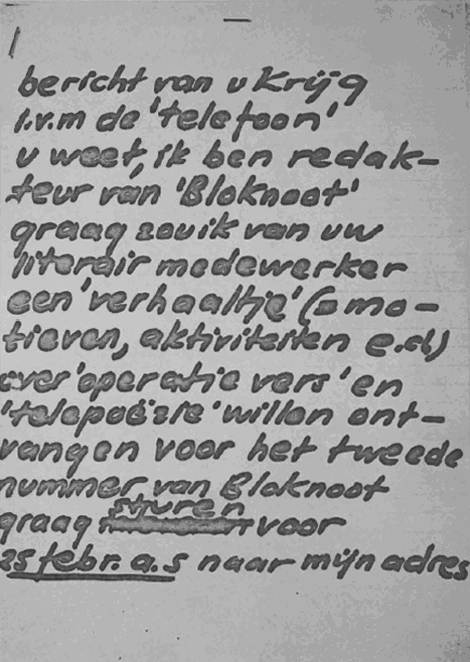 bericht van u krijg
i.v.m de 'telefoon'
u weet, ik ben redak-
teur van 'Bloknoot'
graag zou ik van uw
literair medewerker
een 'verhaaltje' (= mo-
tieven, aktiviteiten e.d.)
over 'operatie vers' en
'telepoëzie' willen ont-
vangen voor het tweede
nummer van Bloknoot
sturen
graag voor
25 febr. a.s naar mijn adres